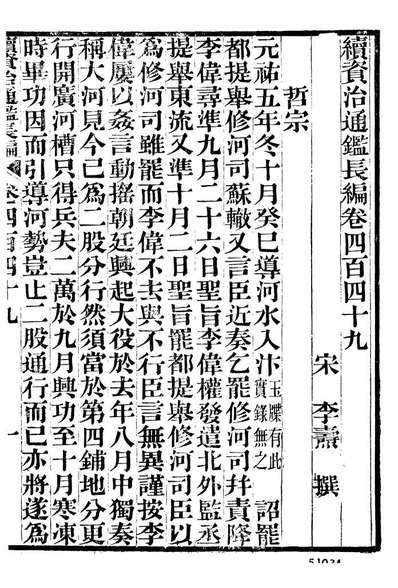 續資治通鑑長編卷四百四十九
宋 李燾 撰
哲宗
元祐五年冬十月癸巳導河水入汴玉牒有此實錄無之詔罷
都提舉修河司蘇轍又言臣近奏乞罷修河司幷責降
李偉尋準九月二十六日聖旨李偉權發遣北外監丞
提舉東流又準十月二日聖旨罷都提舉修河司臣以
爲修河司雖罷而李偉不去與不行臣言無異謹按李
偉屢以姦言動搖朝廷興起大役於去年八月中獨奏
稱大河見今已爲二股分行然須當於第四鋪地分更
行開廣河槽只得兵夫二萬於九月興功至十月寒凍
時畢功因而引導河勢豈止二股通行而已亦將遂爲
續資治通鑑長編 卷四百四十九 一
51034